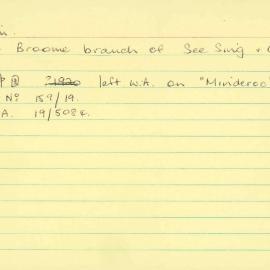 Broome branch of See Sing +
中国 ?1920 left W.A. on "Minderoo"
No 159/19.
A. 19/508